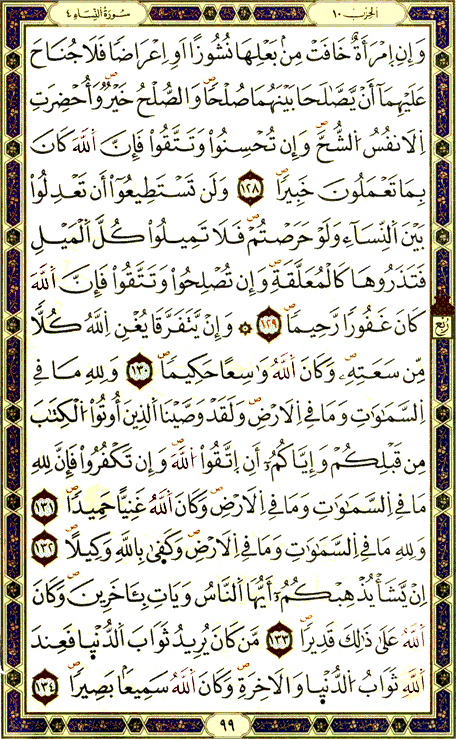 الحزب ١٠
سُورَةُ النِّسَاءِ ٤
وَإِنِ اِمْرَأَةٌ خَافَتْ مِنۢ بَعْلِهَا نُشُوزًا اَوِ اِعْرَاضًا فَلَا جُنَاحَ
عَلَيْهِمَآ أَنْ يَّصَّٰلَحَا بَيْنَهُمَا صُلْحًاۖ وَالصُّلْحُ خَيْرٌۖ وَأُحْضِرَتِ
اِلَانفُسُ اُلشُّحَّۖ وَإِن تُحْسِنُواْ وَتَتَّقُواْ فَإِنَّ اَللَّهَ كَانَ
بِمَا تَعْمَلُونَ خَبِيرًاۖ ١٢٨ وَلَن تَسْتَطِيعُوٓاْ أَن تَعْدِلُواْ
بَيْنَ اَلنِّسَآءِ وَلَوْ حَرَصْتُمْۖ فَلَا تَمِيلُواْ كُلَّ اَلْمَيْلِ
فَتَذَرُوهَا كَالْمُعَلَّقَةِۖ وَإِن تُصْلِحُواْ وَتَتَّقُواْ فَإِنَّ اَللَّهَ
كَانَ غَفُورًا رَّحِيمًاۖ ١٢٩ ۞ وَإِنْ يَّتَفَرَّقَا يُغْنِ اِللَّهُ كُلًّا
رُبُع
مِّن سَعَتِهِۦۖ وَكَانَ اَللَّهُ وَٰسِعًا حَكِيمًاۖ ١٣٠ وَلِلهِ مَا فِے
اِلسَّمَٰوَٰتِ وَمَا فِے اِلَارْضِۖ وَلَقَدْ وَصَّيْنَا اَلذِينَ أُوتُواْ اُلْكِتَٰبَ
مِن قَبْلِكُمْ وَإِيَّاكُمُۥٓ أَنِ اِتَّقُواْ اُللَّهَۖ وَإِن تَكْفُرُواْ فَإِنَّ لِلهِ
مَا فِے اِلسَّمَٰوَٰتِ وَمَا فِے اِلَارْضِۖ وَكَانَ اَللَّهُ غَنِيًّا حَمِيدًاۖ ١٣١
وَلِلهِ مَا فِے اِلسَّمَٰوَٰتِ وَمَا فِے اِلَارْضِۖ وَكَفَىٰ بِاللَّهِ وَكِيلًاۖ ١٣٢
اِنْ يَّشَأْ يُذْهِبْكُمُۥٓ أَيُّهَا اَلنَّاسُ وَيَاتِ بِـَٔاخَرِينَۖ وَكَانَ
اَللَّهُ عَلَىٰ ذَٰلِكَ قَدِيرًاۖ ١٣٣ مَّن كَانَ يُرِيدُ ثَوَابَ اَلدُّنْيَا فَعِندَ
اَللَّهِ ثَوَابُ اُلدُّنْيَا وَالَاخِرَةِۖ وَكَانَ اَللَّهُ سَمِيعًاۢ بَصِيرًاۖ ١٣٤
٩٩